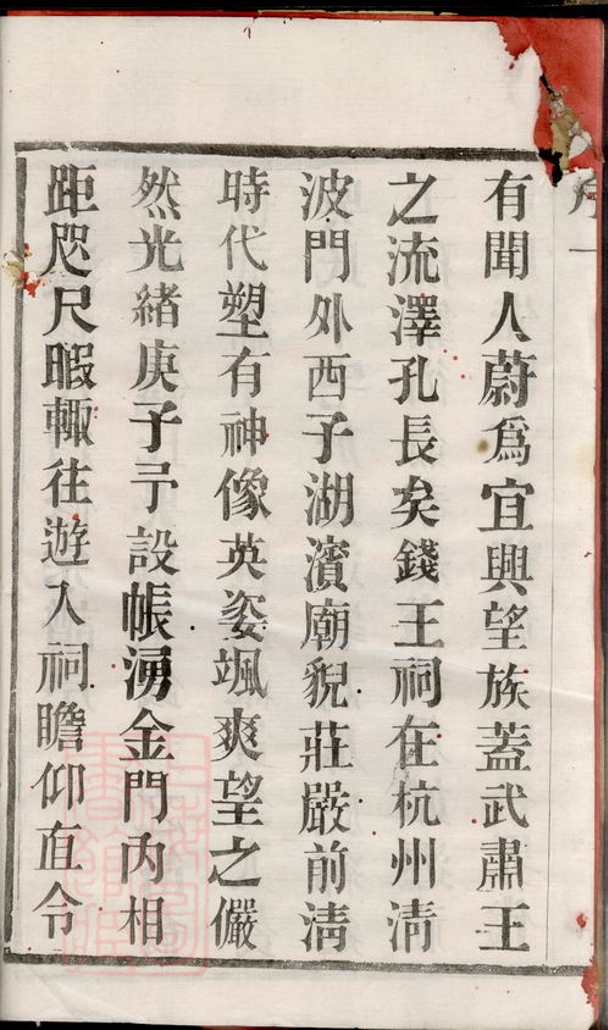 序一
有聞人蔚爲宜興望族蓋武肅王
之流澤孔長矣錢王祠在杭州清
波門外西子湖濱廟貌莊嚴前清
時代塑有神像英姿颯爽望之儼
然光緒庚子予設帳湧金門內相
距咫尺暇輙往遊入祠瞻仰直令